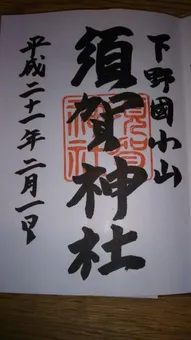 下野國小山
須賀神社
平成二十一年二月一日